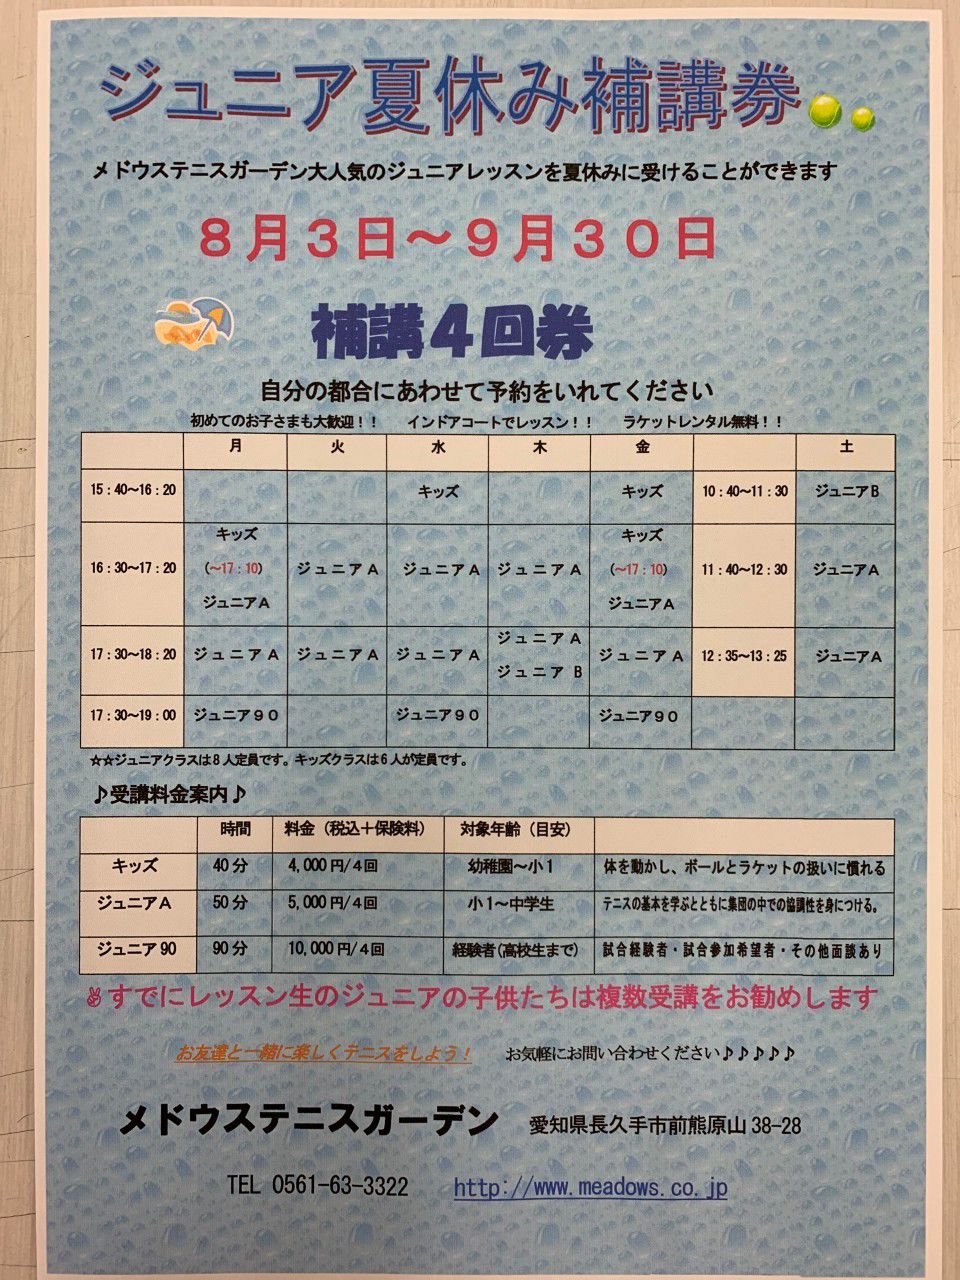 ジュニア夏休み補講券
メドウステニスガーデン大人気のジュニアレッスンを夏休みに受けることができます
８月３日～９月３０日
補講４回券
自分の都合にあわせて予約をいれてください
初めてのお子さまも大歓迎！！ インドアコートでレッスン！！ ラケットレンタル無料！！
月 火 水 木 金 土
15：40～16：20 キッズ キッズ 10：40～11：30 ジュニアB
キッズ キッズ
16：30～17：20 (～17：10) ジュニアＡ ジュニアＡ ジュニアＡ (～17：10) 11：40～12：30 ジュニアA
ジュニアA ジュニアA
ジュニアＡ
17：30～18：20 ジュニアＡ ジュニアＡ ジュニアＡ ジュニアＡ 12：35～13：25 ジュニアA
ジュニア B
17：30～19：00 ジュニア９０ ジュニア９０ ジュニア９０
☆☆ジュニアクラスは８人定員です。キッズクラスは６人が定員です。
♪受講料金案内♪
時間 料金（税込＋保険料） 対象年齢（目安）
キッズ 40分 4,000円/４回 幼稚園～小１ 体を動かし、ボールとラケットの扱いに慣れる
ジュニアＡ 50分 5,000円/４回 小１～中学生 テニスの基本を学ぶとともに集団の中での協調性を身につける。
ジュニア90 90分 10,000円/４回 経験者(高校生まで) 試合経験者・試合参加希望者・その他面談あり
✌すでにレッスン生のジュニアの子供たちは複数受講をお勧めします
お友達と一緒に楽しくテニスをしよう！ お気軽にお問い合わせください♪♪♪♪♪
メドウステニスガーデン 愛知県長久手市前熊原山38-28
TEL 0561-63-3322 http://www.meadows.co.jp